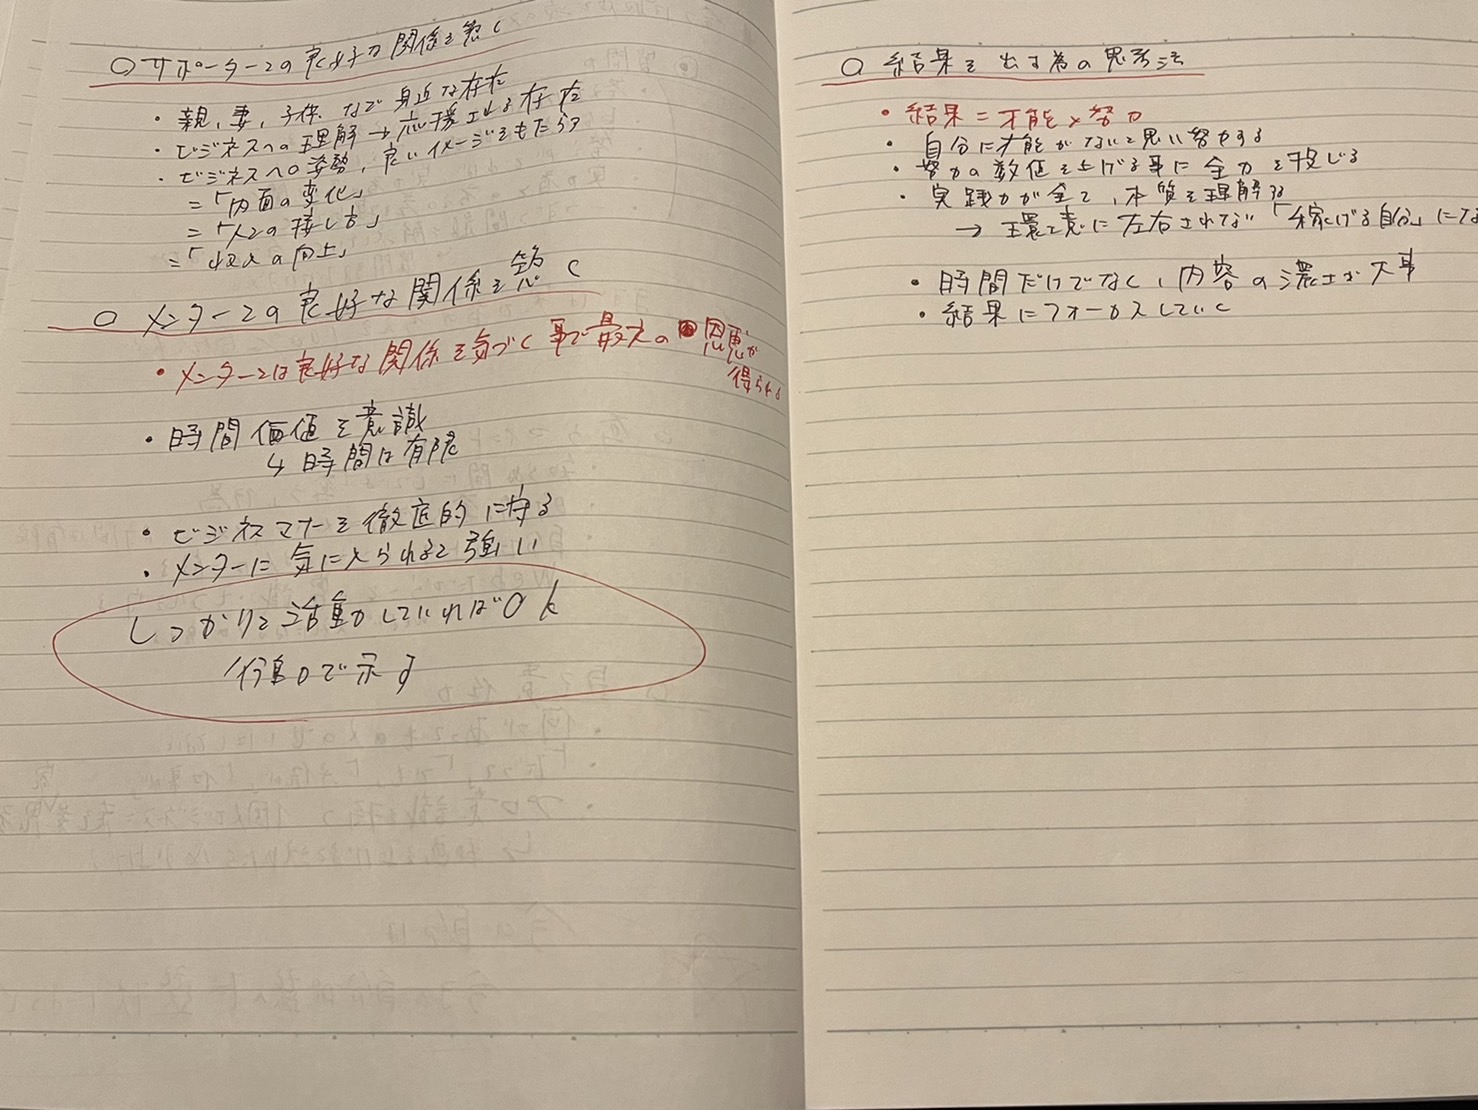 ○サポーターとの良好な関係を築く
・親、妻、子供など身近な存在
・ビジネスへの理解→応援される存在
・ビジネスへの姿勢、良いイメージをもたらす
=「内面の変化」
=「人との接し方」
=「収入の向上」
○メンターとの良好な関係を築く
・メンターとは良好な関係を気づく事で最大の恩恵が
得られる
・時間価値を意識
↳時間は有限
・ビジネスマナーを徹底的に守る
・メンターに気に入られると強い
しっかりと活動していればOK
行動で示す
○結果を出す為の思考法
・結果=才能×努力
・自分に才能がないと思い努力する
・努力の数値を上げる事に全力を投じる
・実践力が全て、本質を理解する
→環境に左右されない「稼げる自分」にな
・時間だけでなく、内容の濃さが大事
・結果にフォーカスしていく